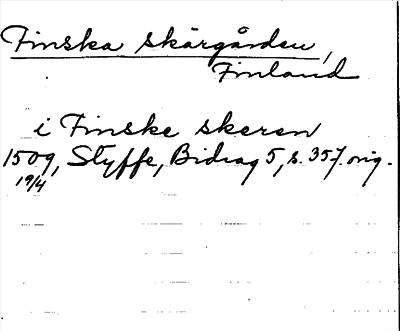 Finska skärgården,
Finland
i Finske skeren
1509, Styffe, Bidrag 5, s. 357. orig.
19/4